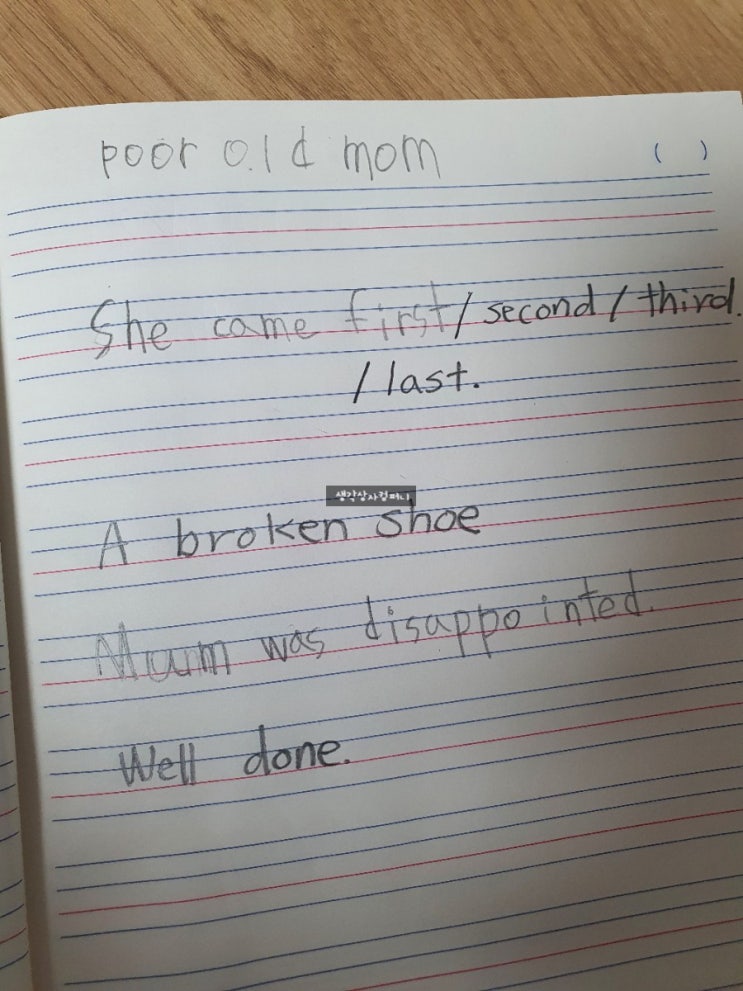 poor old mom ( )
She came first / second / third.
/ last.
생각상자컴퍼니
A broken shoe
Mum was disappointed.
Well done.